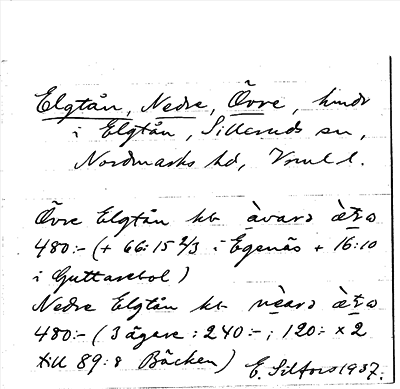 Elgtån, Nedre, Övre, hmdr
i Elgtån, Silleruds sn,
Nordmarks hd, Vrml l.
Övre Elgtån kb àvarə
480:- (+ 66:15 2/3 i Egenäs + 16:10
i Guttarebol)
Nedre Elgtån kb
480:- (3 ägare: 240:-; 120:- x 2
till 89:8 Bäcken) E. Silfors 1937.